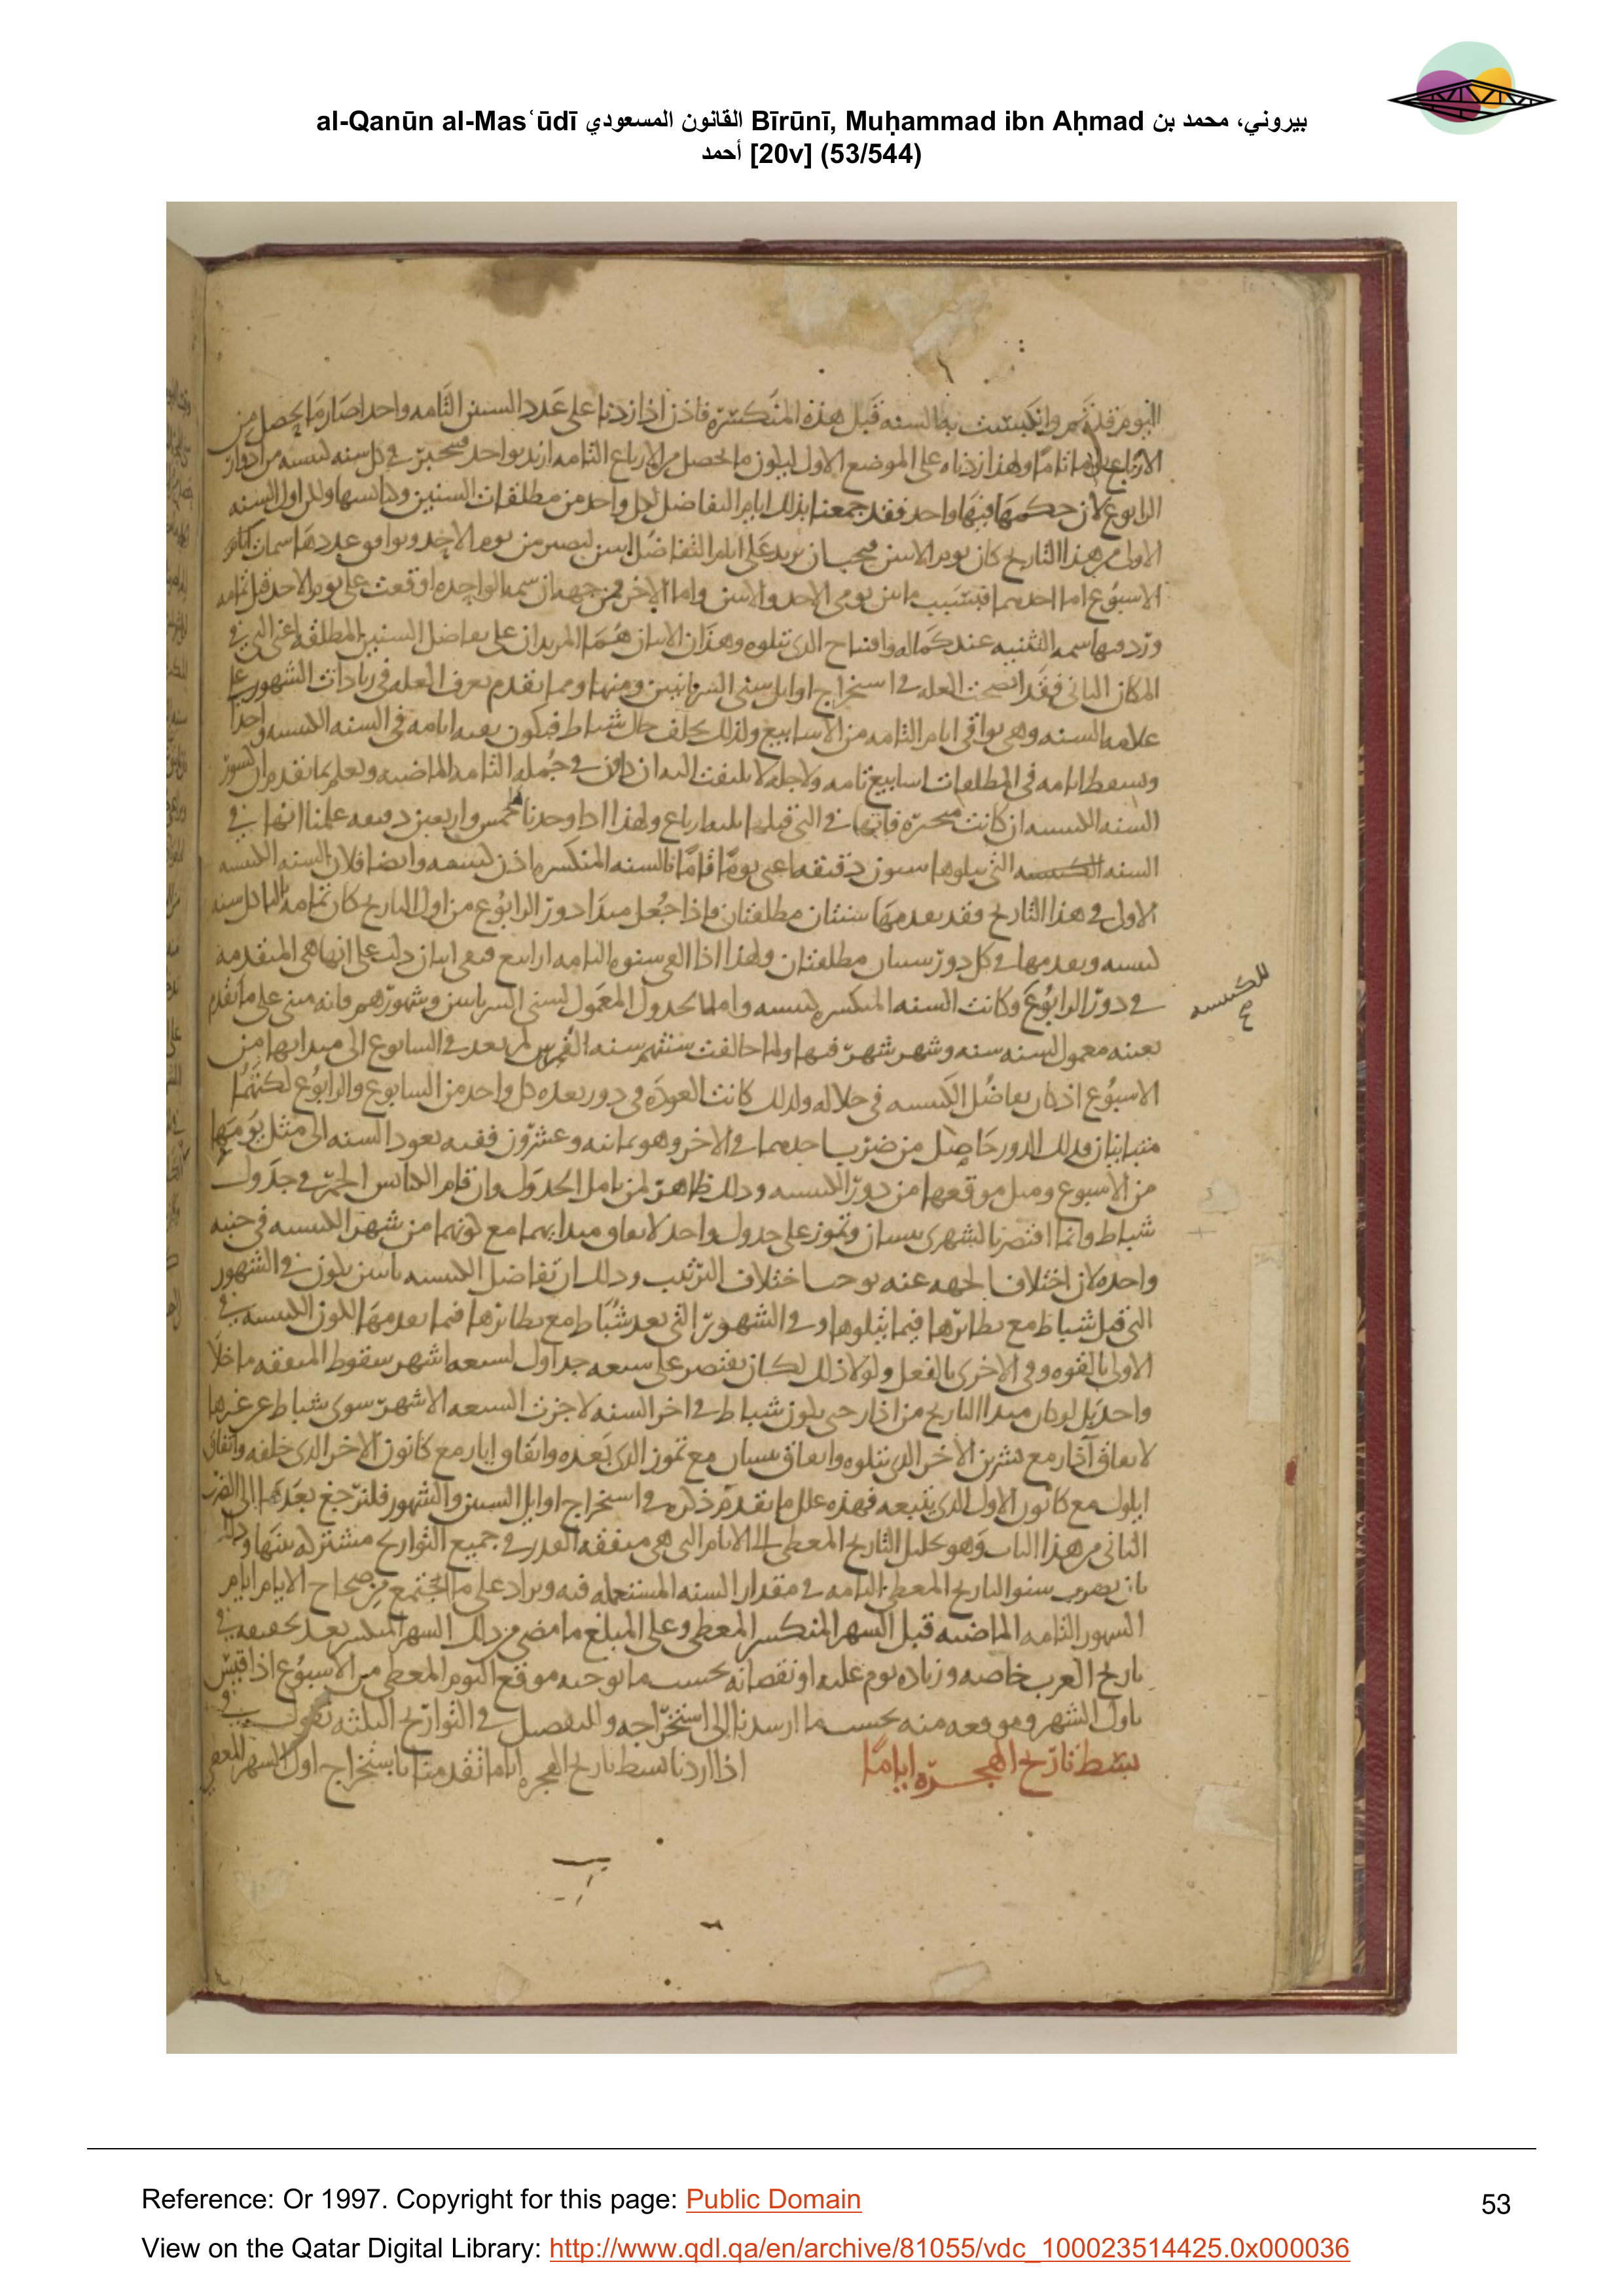 al-Qanūn al-Masʿūdī القانون المسعودي Bīrūnī, Muḥammad ibn Aḥmad بيروني، محمد بن
أحمد [20v] (53/544)
اليوم قد تم وانكبست به السنه قبل هذه المنكسره فاذن اذا زدنا على عدد السنين التامه واحدا صار ما يحصل من
الارباع تاما ولهذا زدناه على الموضع الاول ليكون ما يحصل من الارباع التامه ازيد بواحد في كل سنه كبيسه من ادوار
الرابوع لان حكمها فيها واحد فقد جمعنا بذلك ايام التفاضل لكل واحد من مطلقات السنين وكبائسها ولان اول السنه
الاولى من هذا التاريخ كان يوم الاثنين فيجب ان نزيد على ايام التفاضل اثنين ليصير من يوم الاحد ويوافق عددها سمات ايام
الاسبوع اما احدهما فبسبب ما بين يومي الاحد والاثنين واما الاخر فمن جهه ان سمه الواحده اوقعت على يوم الاحد قبل تمامه
سمه التثنيه عند كماله وافتتاح الذي يتلوه وهذان الاثنان هما المزيدان على تفاضل السنين المطلقه اعني التي في
المكان الثاني فقد اتضحت العله في استخراج اوايل سني السريانيين ومنها ومما تقدم تعرف العله في زيادات الشهور على
علامه السنه وهي بواقي ايام التامه من الاسابيع ولذلك يختلف حال شباط فيكون بقيه ايامه في السنه الكبيسه واحدا
وتسقط ايامه في المطلقات اسابيع تامه ولاجله لا يلتفت اليه ان كان في جمله التامه الماضيه ونعلم بما تقدم ان كسور
السنه الكبيسه ان كانت منجبره فانها في التي قبلها ثلثه ارباع ولهذا اذا وجدنا خمس واربعين دقيقه علمنا انها في
السنه التي يتلوها ستون دقيقه اعني يوما تاما فالسنه المنكسره اذن كبيسه وايضا فلان السنه الكبيسه
الاولى في هذا التاريخ فقد تقدمها سنتان مطلقتان فاذا جعل مبدا دور الرابوع من اول التاريخ كان ثالثه كل سنه
كبيسه وتقدمها في كل دور سنتان مطلقتان ولهذا اذا القي سنوه التامه ارابيع فبقي اثنان دلت على انها هي المتقدمه
للكبيسه
في دور الرابوع وكانت السنه المنكسره كبيسه واما الجدول المعمول لسني السريانيين وشهورهم فانه مبني على ما تقدم
بعينه معمول لسنه سنه وشهر شهر فيها ولما خالفت سنتهم سنه الفرس لم تعد في السابوع الى مبدايها من
الاسبوع اذ كان تفاضل الكبيسه في خلاله ولذلك كانت العوده في دور يعده كل واحد من السابوع والرابوع لكنهما
متباينان فذلك الدور حاصل من ضرب احدهما في الاخر وهو ثمانيه وعشرون ففيه تعود السنه الى مثل يومها
من الاسبوع ومثل موقعها من دور الكبيسه وذلك ظاهر لمن تامل الجدول وارقام الكبائس الحمر في جدول
شباط وانما اقتصرنا لشهري نيسان وتموز على جدول واحد لاتفاق مبدايهما مع كونهما من شهر الكبيسه في جنبه
واحده لان اختلاف الجهه عنه يوجب اختلاف الترتيب وذلك ان تفاضل الكبيسه باثنين يكون في الشهور
التي قبل شباط مع نظائرها فيما يتلوها وفي الشهور التي بعد شباط مع نظائرها فيما تقدمها لكون الكبيسه في
الاولى بالقوه وفي الاخرى بالفعل ولولا ذلك لكان يقتصر على سبعه جداول لسبعه اشهر سقوط المتفقه ما خلا
واحد بل لو كان مبدا التاريخ من اذار حتى يكون شباط في اخر السنه لاجزت السبعه الاشهر سوى شباط عن غيرها
لاتفاق آذار مع تشرين الاخر الذي يتلوه واتفاق نيسان مع تموز الذي بعده واتفاق ايار مع كانون الاخر الذي خلفه واتفاق
ايلول مع كانون الاول الذي يتبعه فهذه علل ما تقدم ذكره في استخراج اوايل السنين والشهور فلنرجع بعدها الى الضرب
الثاني من هذا الباب وهو تحليل التاريخ المعطى الى الايام التي هي متفقه القدر في جميع التواريخ مشتركه بينها وذلك
بان يضرب سنو التاريخ المعطى التامه في مقدار السنه المستعمله فيه ويزاد على ما اجتمع من صحاح الايام ايام
الشهور التامه الماضيه قبل الشهر المنكسر المعطى وعلى المبلغ ما مضى من ذلك الشهر المنكسر بعد تحقيقه في
تاريخ العرب خاصه وزياده يوم عليه او نقصانه بحسب ما يوجبه موقع اليوم المعطى من الاسبوع اذا قيس
باول الشهر وموقعه منه بحسب ما ارشدنا الى استخراجه وللتفصيل في التواريخ الثلثه نقول في
بسط تاريخ الهجره اياما اذا اردنا بسط تاريخ الهجره اياما تقدمنا باستخراج اول الشهر المعطى
Reference: Or 1997. Copyright for this page: Public Domain
53
View on the Qatar Digital Library: http://www.qdl.qa/en/archive/81055/vdc_100023514425.0x000036